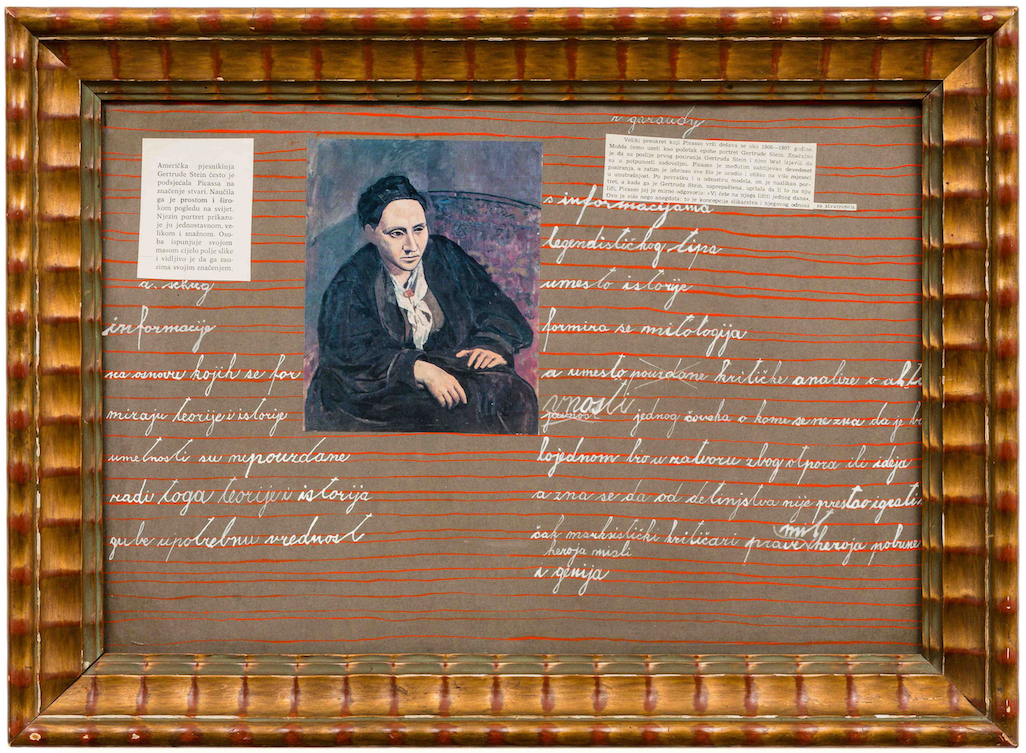 Američka pjesnikinja
Gertrude Stein često je
podsjećala Picassa na
značenje stvari. Naučila
ga je prostom i širo-
kom pogledu na svijet.
Njezin portret prikazu-
je ju jednostavnom, ve-
likom i snažnom. Oso-
ba ispunjuje svojom
masom cijelo polje slike
i vidljivo je da ga zau-
zima svojim značenjem.
informacije
na osnovu kojih se for
miraju teorije i istorije
umetnosti su nepouzdane
radi toga teorije i istorija
gube upotrebnu vrednost
r garaudy
Veliki preokret koji Picasso vrši dešava se oko 1906—1907. godine.
Možda ćemo uzeti kao početak epohe portret Gertrude Stein. Značajno
je da na poslije prvog poziranja Gertrude Stein i njen brat izjavili da
su u potpunosti zadovoljni. Picasso je međutim zahtijevao devedeset
poziranja, a zatim je izbrisao sve što je uradio i otišao na više mjeseci
u unutrašnjost. Po povratku i u odsustvu modela, on je naslikao por-
tret, a kada ga je Gertruda Stein, zaprepaštena, upitala da li to na nju
liči, Picasso joj je mirno odgovorio: »Vi ćete na njega ličiti jednog dana«.
Ovo je više nego anegdota: to je koncepcija slikarstva i njegovog odnosa
sa stvarnošću
s informacijama
legendističkog tipa
umesto istorije
formira se mitologija
a umesto pouzdane kritičke analize o akti
vnosti
jednog čoveka o kome se ne zna da je b
lojednom bio u zatvoru zbog otpora ili ideja
a zna se da od detinjstva nije prestao igrati
čak marksistički kritičari prave mit heroja pobune
heroja misli
i genija